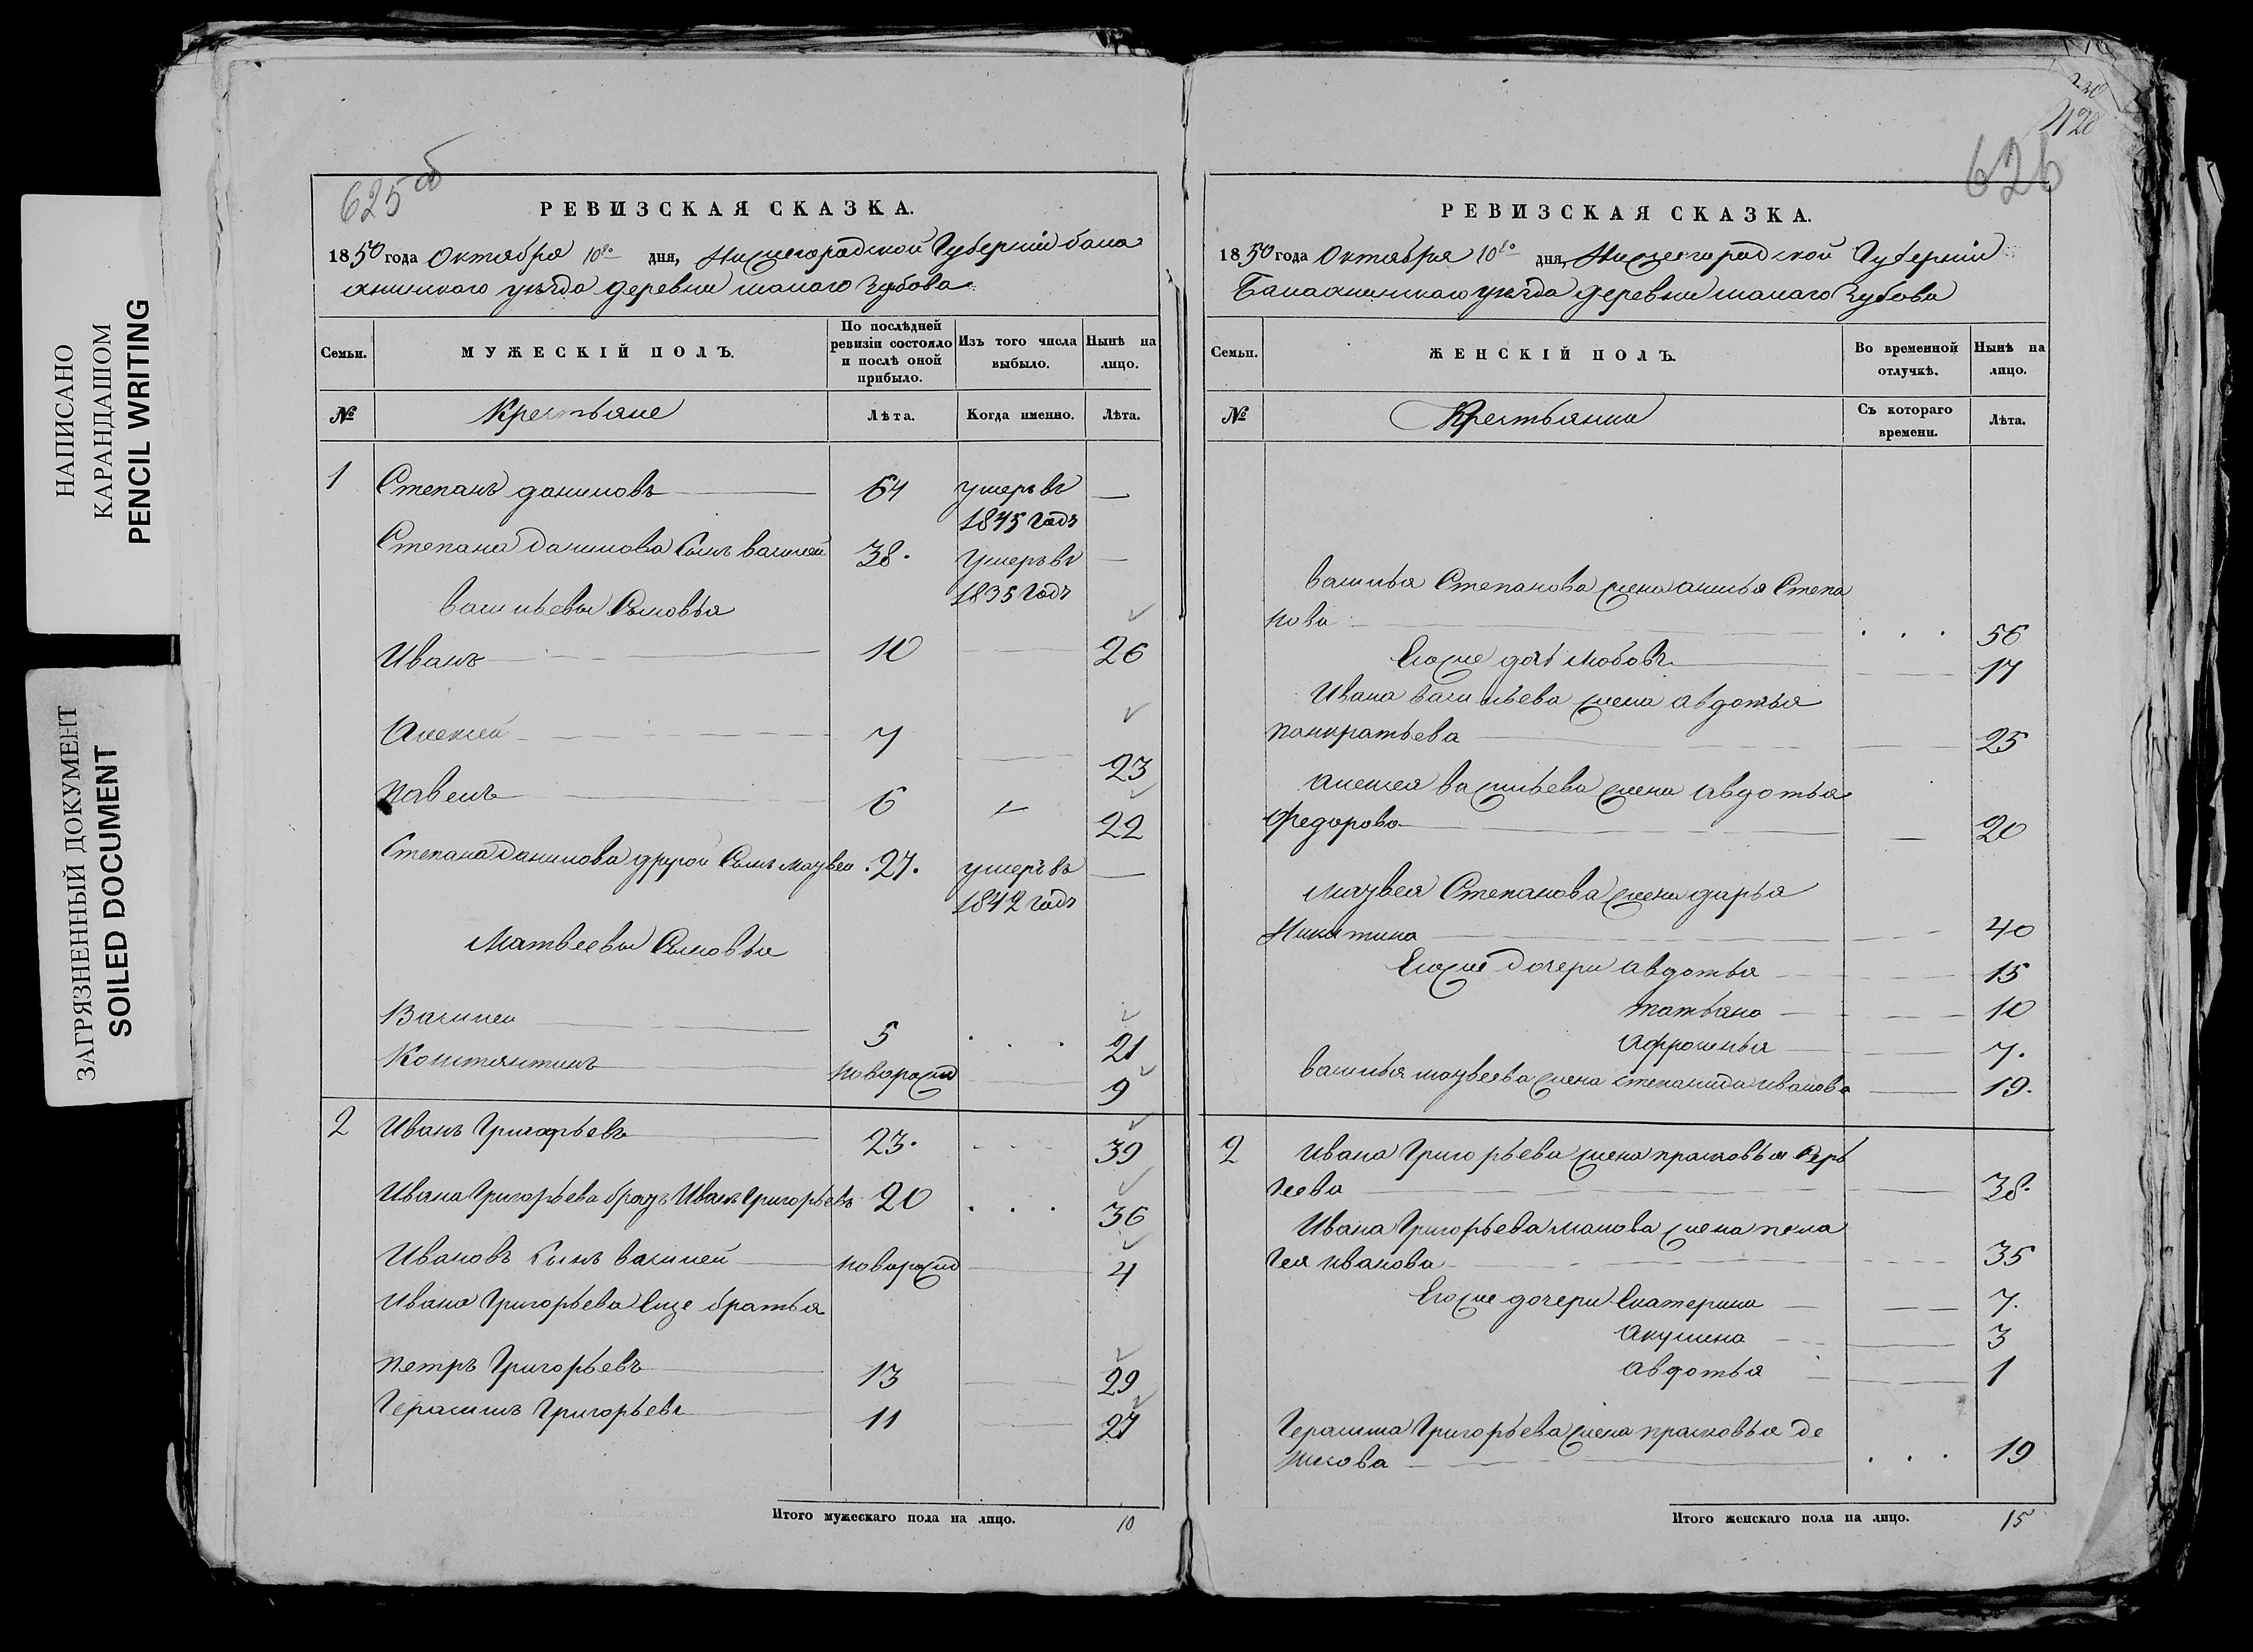 НАПИСАНО
КАРАНДАШОМ
PENCIL WRITING
ЗАГРЯЗНЕННЫЙ ДОКУМЕНТ
SOILED DOCUMENT
625 об
РЕВИЗСКАЯ СКАЗКА.
1850 года Октября 10го дня, Нижегородской Губернии бала
хнинского уезда деревни малаго Зубова
Семьи.
МУЖЕСКІЙ ПОЛЪ.
По послѣдней ревизіи состояло и послѣ оной прибыло.
Изъ того числа выбыло.
Нынѣ на лицо.
№ Крестьяне Лѣта. Когда именно. Лѣта.
1 Степанъ даниловъ 64 умеръ въ —
1845 годъ
Степана данилова Сынъ василей 38. умеръ въ —
1835 годъ
васильевы Сыновья
Иванъ 10 26
Алексей 7 23
павелъ 6 22
Степана данилова другой Сынъ матвей 27. умеръ въ —
1842 годъ
Матвеевы Сыновья
Василей 5 21
Констянтинъ новорожд 9
2 Иванъ Григорьевъ 23. 39
Ивана Григорьева братъ Иванъ Григорьевъ 20 36
Ивановъ Сынъ василей новорожд 4
Ивана Григорьева Еще братья
петръ Григорьевъ 13 29
Герасимъ Григорьевъ 11 27
Итого мужескаго пола на лицо. 10
420
626
РЕВИЗСКАЯ СКАЗКА.
1850 года Октября 10го дня, Нижегородской Губерніи
Балахнинскаго уезда деревни малаго Зубова
Семьи.
ЖЕНСКІЙ ПОЛЪ.
Во временной отлучкѣ.
Нынѣ на лицо.
№ Крестьянки Съ котораго времени. Лѣта.
василья Степанова жена анисья Степа
нова 56
Егоже дочь любовь 17
Ивана васильева жена авдотья
панкратьева 25
алексея васильева жена авдотья
Федорова 20
матвея Степанова жена дарья
Никитина 40
Егоже дочери авдотья 15
татьяна 10
афросинья 7.
василья матвеева жена степанида иванова 19.
2 Ивана Григорьева жена прасковья Сер
геева 38.
Ивана Григорьева малова жена пела
гея иванова 35
Егоже дочери Екатерина 7.
акулина 3
авдотья 1
Герасима Григорьева жена прасковья де
нисова 19
Итого женскаго пола на лицо. 15